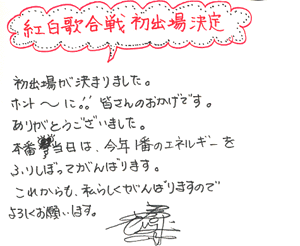 紅白歌合戦 初出場 決定
初出場が決まりました。
ホント〜に!! 皆さんのおかげです。
ありがとうございました。
本番当日は、今年1番のエネルギーを
ふりしぼってがんばります。
これからも、私らしくがんばりますので
よろしくお願いします。